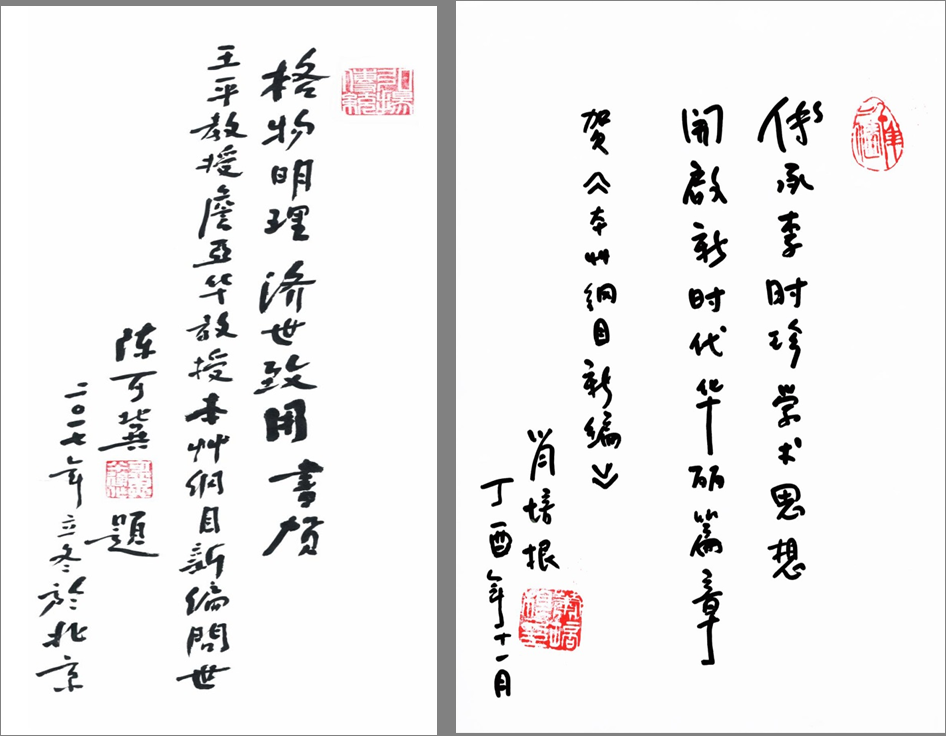 格物明理 济世致用 書贺
王平教授詹亚华教授本艸纲目新编問世
陈可冀題
二〇一七年立冬於北京
传承李时珍学术思想
開啟新时代华丽篇章
贺《本艸纲目新编》
肖培根
丁酉年十一月